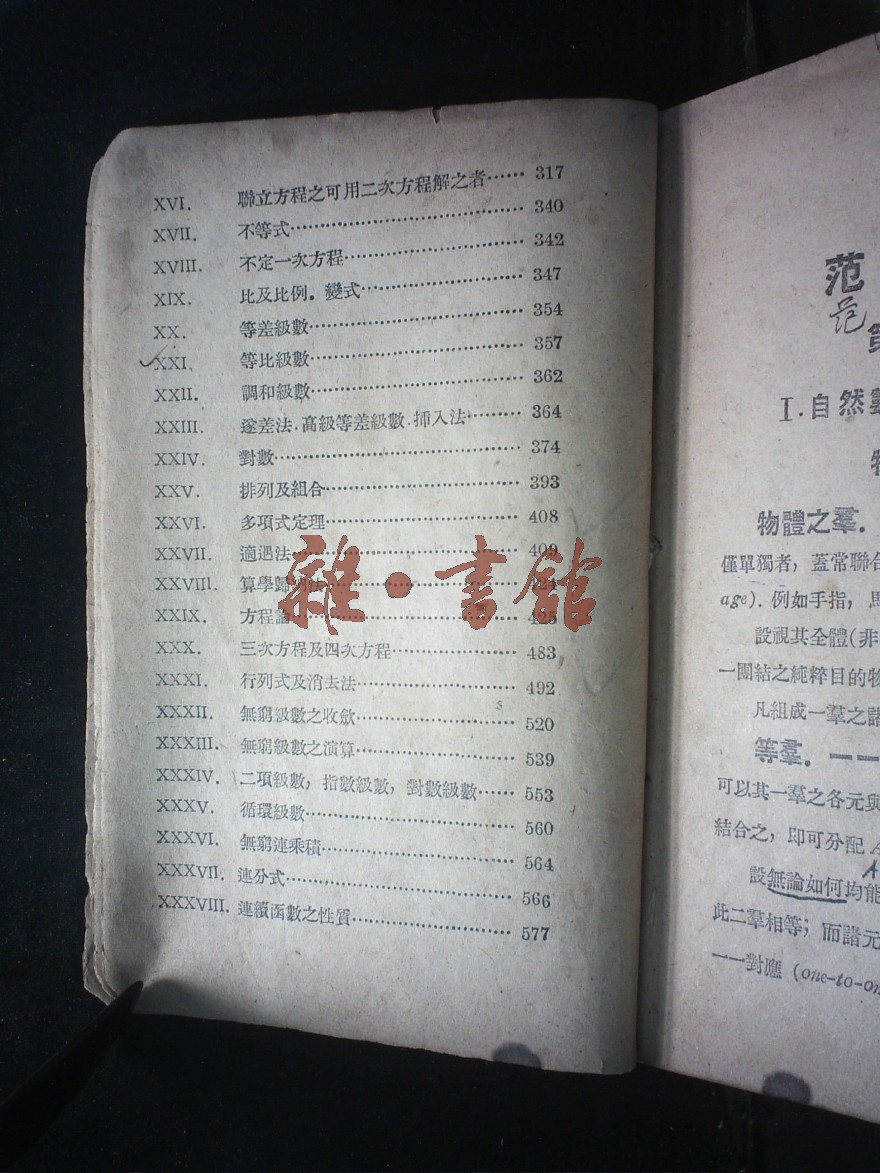 XVI. 聯立方程之可用二次方程解之者⋯⋯ 317
XVII. 不等式⋯⋯ 340
XVIII. 不定一次方程⋯⋯ 342
XIX. 比及比例。變式⋯⋯ 347
XX. 等差級數⋯⋯ 354
XXI. 等比級數⋯⋯ 357
XXII. 調和級數⋯⋯ 362
XXIII. 遂差法.高級等差級數.揷入法⋯⋯ 364
XXIV. 對數⋯⋯ 374
XXV. 排列及組合⋯⋯ 393
XXVI. 多項式定理⋯⋯ 408
XXVII. 適遇法⋯⋯ 409
XXVIII. 算學歸納法⋯⋯ 424
XXIX. 方程論⋯⋯ 425
XXX. 三次方程及四次方程⋯⋯ 483
XXXI. 行列式及消去法⋯⋯ 492
XXXII. 無窮級數之收斂⋯⋯ 520
XXXIII. 無窮級數之演算⋯⋯ 539
XXXIV. 二項級數，指數級數，對數級數⋯⋯ 553
XXXV. 循環級數⋯⋯ 560
XXXVI. 無窮連乘積⋯⋯ 564
XXXVII. 連分式⋯⋯ 566
XXXVIII. 連續函數之性質⋯⋯ 577
雜·書館
范
范
I.自然
物體之羣.
僅單獨者，蓋常聯合
age). 例如手指，馬
設視其全體(非
一團結之純粹目的物
凡組成一羣之諸
等羣. 一一
可以其一羣之各元與
結合之，即可分配 A
A
設無論如何均能
此二羣相等；而諸元
一一對應 (one-to-on